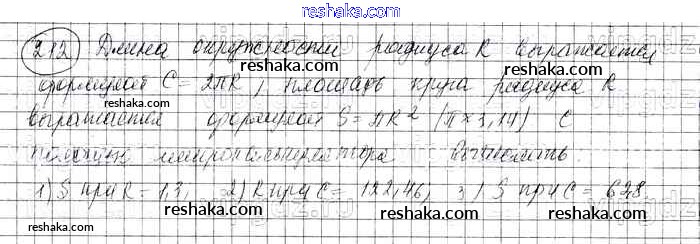 reshaka.com
212 Длина окружности радиуса R выражается
reshaka.com
формулой C = 2πR, площадь круга радиуса R
reshaka.com
выражается формулой S = πR² (π≈3,14) С
reshaka.com
помощью микрокалькулятора вычислить.
reshaka.com
1) S при R = 1,3, 2) R при C = 122,46, 3) S при C = 628
reshaka.com